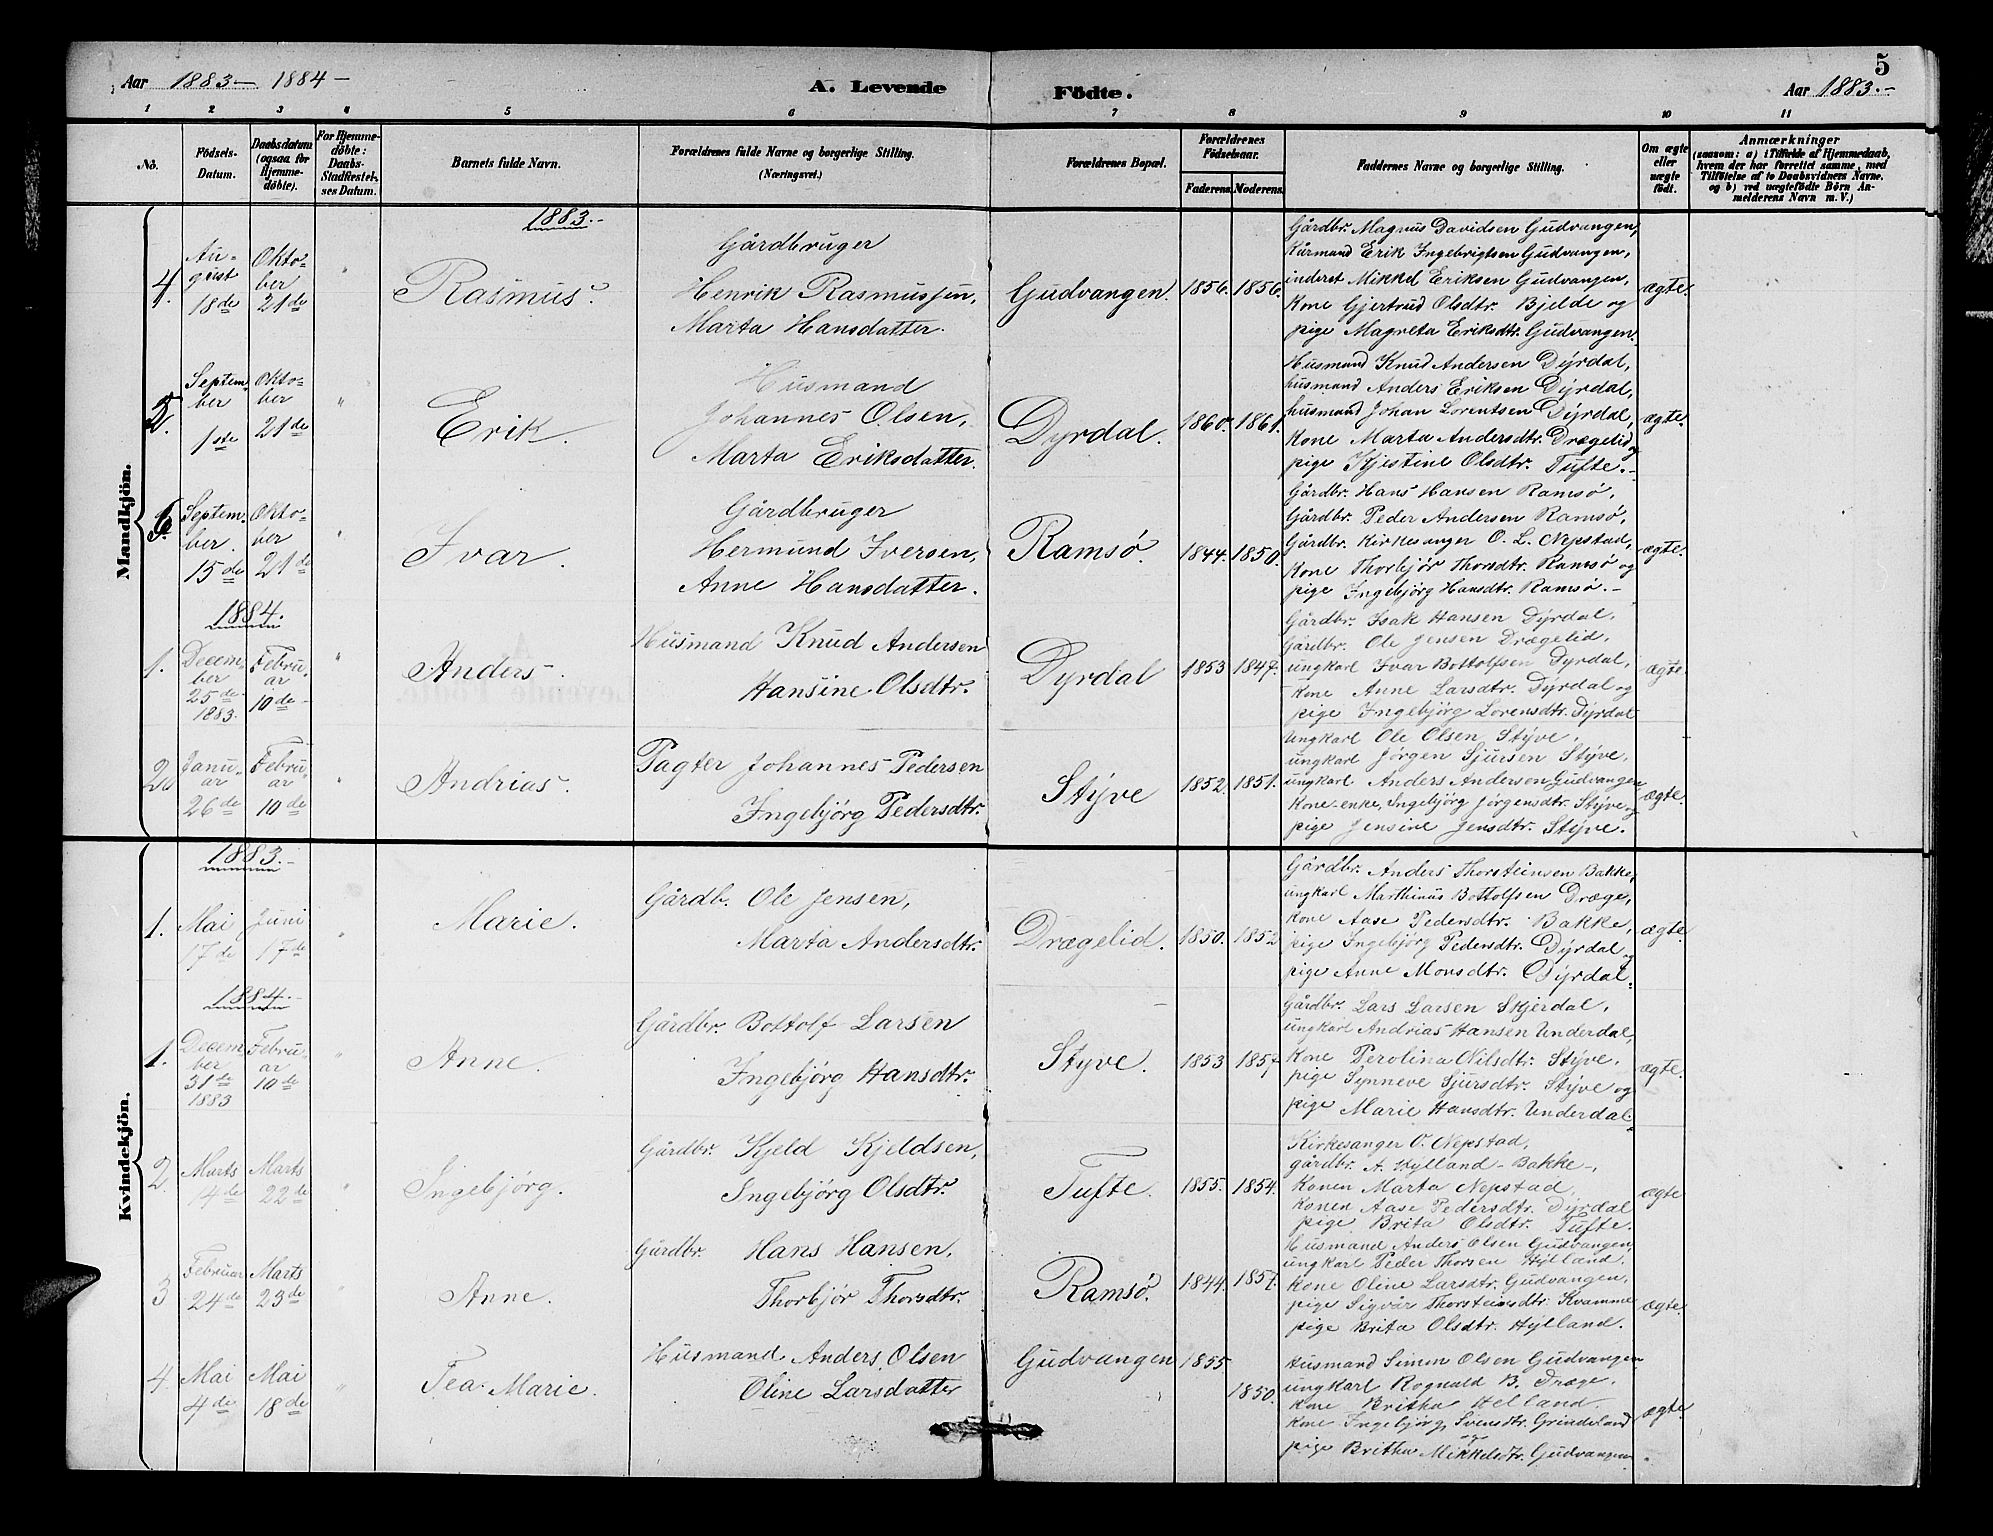 5
Aar 1883 - 1884 -
A. Levende Födte.
Aar 1883.-
1 2 3 4 5 6 7 8 9 10 11
No.
Födsels-
Datum.
Daabsdatum
(ogsaa for
Hjemme-
döbte).
For Hjemme-
döbte:
Daabs-
Stadfæstel-
ses Datum.
Barnets fulde Navn.
Forældrenes fulde Navne og borgerlige Stilling.
(Næringsvei.)
Forældrenes Bopæl.
Forældrenes
Födselsaar.
Faderens. Moderens.
Faddernes Navne og borgerlige Stilling.
Om ægte
eller
uægte
födt.
Anmærkninger
(saasom: a) i Tilfælde af Hjemmedaab,
hvem der har forrettet samme, med
Tilföielse af to Daabsvidners Navne,
og b) ved uægtefödte Börn An-
melderens Navn m. V.)
Mandkjön.
1883.-
4.
Au-
gust
18de
Okto-
ber
21de
"
Rasmus.
Gårdbruger
Henrik Rasmussen,
Marta Hansdatter.
Gudvangen.
1856. 1856.
Gårdbr. Magnus Davidsen Gudvangen,
Kårmand Erik Ingebrigtsen Gudvangen,
inderst Mikkel Eriksen Gudvangen,
Kone Gjertrud Olsdtr. Bjelde og
pige Magreta Eriksdtr. Gudvangen.
ægte.
5.
Septem-
ber
1ste
Okto-
ber
21de
"
Erik.
Husmand
Johannes Olsen,
Marta Eriksdatter.
Dyrdal.
1860. 1861.
Husmand Knud Andersen Dyrdal,
husmand Anders Eriksen Dyrdal,
husmand Johan Lorentsen Dyrdal,
Kone Marta Andersdtr. Drægelid og
pige Kjestine Olsdtr. Tufte.-
ægte.
6.
Septem-
ber.
15de
Okto-
ber
21de
"
Ivar.
Gårdbruger
Hermund Iversen,
Anne Hansdatter.
Ramsø.
1844. 1850.
Gårdbr. Hans Hansen Ramsø,
Gårdbr. Peder Andersen Ramsø,
Gårdbr. Kirkesanger O. L. Nepstad,
Kone Thorbjör Thorsdtr. Ramsø og
pige Ingebjörg Hansdtr. Ramsø.-
ægte.
1884.
1.
Decem-
ber
25de
1883.
Febru-
ar
10de
"
Anders.
Husmand Knud Andersen
Hansine Olsdtr.
Dyrdal
1853 1847.
Gårdbr. Isak Hansen Dyrdal,
Gårdbr. Ole Jensen Drægelid,
ungkarl Ivar Bottolfsen Dyrdal,
Kone Anne Larsdtr. Dyrdal og
pige Ingebjörg Lorensdtr. Dyrdal
ægte.
2.
Janu-
ar
26de
Febru-
ar
10de
"
Andrias.
Pagter Johannes Pedersen
Ingebjörg Pedersdtr.
Styve
1852. 1851.
Ungkarl Ole Olsen Styve,
ungkarl Jörgen Sjursen Styve,
ungkarl Anders Andersen Gudvangen
Kone enke, Ingebjörg Jörgensdtr. Styve og
pige Jensine Jensdtr. Styve.
ægte.
Kvindekjön.
1883.-
1.
Mai
17de
Juni
17de
"
Marie.
Gårdb. Ole Jensen,
Marta Andersdtr.
Drægelid.
1850. 1852
Gårdbr. Anders Thorsteinsen Bakke,
ungkarl Marthinus Bottolfsen Dræge,
Kone Aase Pedersdtr. Bakke,
pige Ingebjörg Pedersdtr. Dyrdal og
pige Anne Monsdtr. Dyrdal.
ægte.
1884.-
1.
Decem
ber
31de
1883
Febru-
ar
10de
"
Anne.
Gårdbr. Bottolf Larsen
Ingebjörg Hansdtr.
Styve.
1853 1857
Gårdbr. Lars Larsen Skjerdal,
ungkarl Andrias Hansen Underdal,
Kone Perolina Nilsdtr. Styve,
pige Synneve Sjursdtr. Styve og
pige Marie Hansdtr. Underdal.
ægte.
2
Marts
4de
Marts
22de
"
Ingebjörg.
Gårdbr. Kjeld Kjeldsen,
Ingebjörg Olsdtr.
Tufte.
1855. 1854.
Kirkesanger O. Nepstad,
gårdbr. A. Hylland - Bakke -,
Konen Marta Nepstad,
Konen Aase Pedersdtr. Dyrdal
pige Brita Olsdtr. Tufte.
ægte
3
Februar
24de
Marts
23de
"
Anne.
Gårdbr. Hans Hansen,
Thorbjör Thorsdtr.
Ramsø.
1844. 1857.
Husmand Anders Olsen Gudvangen,
ungkarl Peder Thorsen Hylland.
Kone Oline Larsdtr. Gudvangen,
pige Sigvår Thorsteinsdtr. Kvamme
pige Brita Olsdtr. Hylland.
ægte.
4.
Mai
4de
Mai
18de
"
Tea Marie.
Husmand Anders Olsen
Oline Larsdatter
Gudvangen
1855 1850.
Husmand Simon Olsen Gudvangen
ungkarl Rognald B. Dræge.
Kone Britha Helland.
Kone Ingebjörg Svensdtr. Grindeland
pige Britha Mikkelsdtr. Gudvangen.
ægte.